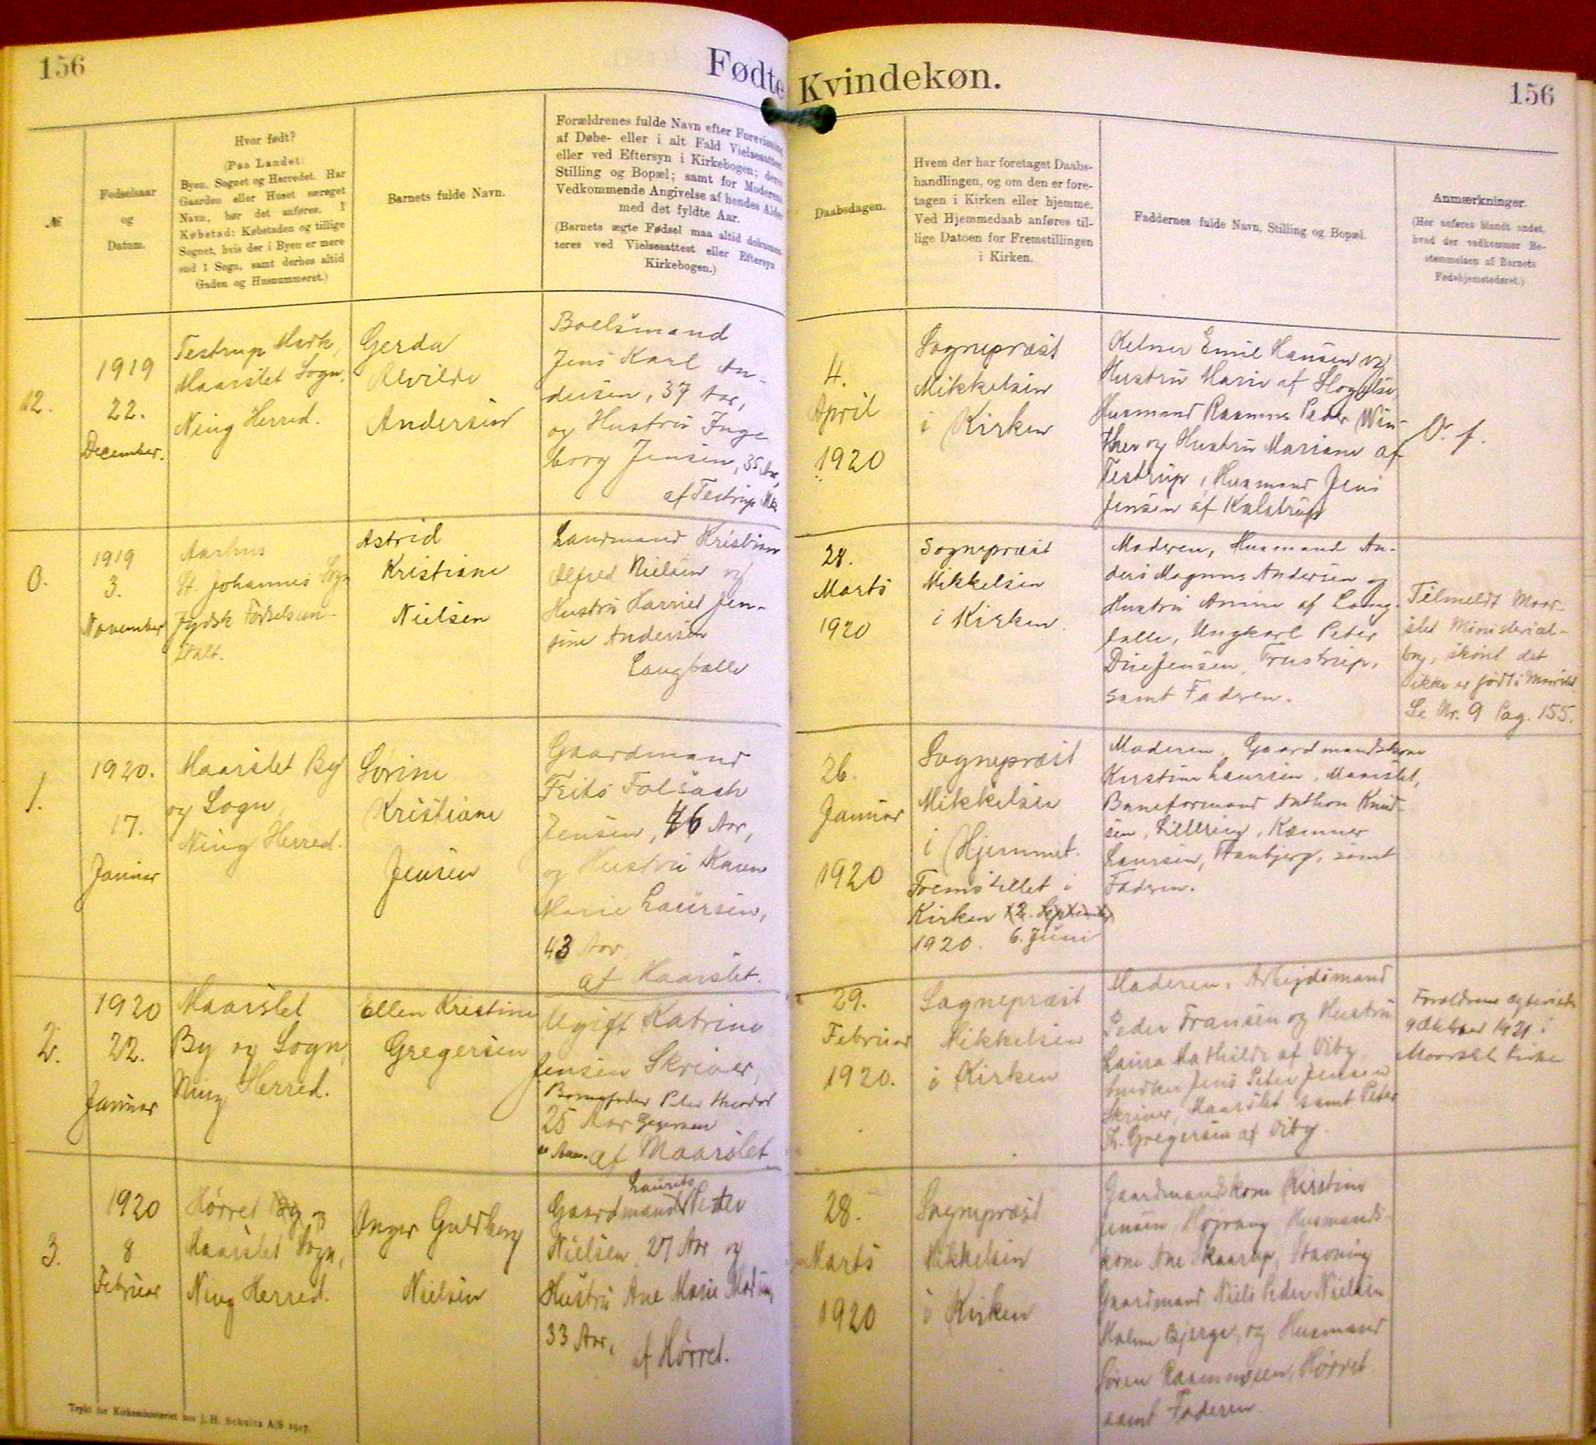 156
Fødte
Kvindekøn.
156
№
Fødselsaar
og
Datum.
Hvor født?
(Paa Landet:
Byen, Sognet og Herredet. Har
Gaarden eller Huset særeget
Navn, bør det anføres. I
Købstad: Købstaden og tillige
Sognet, hvis der i Byen er mere
end 1 Sogn, samt derhos altid
Gaden og Husnummeret.)
Barnets fulde Navn.
Forældrenes fulde Navn efter
af Døbe- eller i alt Fald Vielsesattest
eller ved Eftersyn i Kirkebogen; deres
Stilling og Bopæl; samt for Moderens
Vedkommende Angivelse af hendes Alder
med det fyldte Aar.
(Barnets ægte Fødsel maa altid dokumen-
teres ved Vielsesattest eller Eftersyn
Kirkebogen.)
Daabsdagen.
Hvem der har foretaget Daabs-
handlingen, og om den er fore-
tagen i Kirken eller hjemme.
Ved Hjemmedaab anføres til-
lige Datoen for Fremstillingen
i Kirken.
Faddernes fulde Navn, Stilling og Bopæl.
Anmærkninger.
(Her anføres blandt andet,
hvad der vedkommer Be-
stemmelsen af Barnets
Fødehjemstedsret.)
12.
1919
22.
December.
Testrup Mark,
Maarslet Sogn,
Ning Herred.
Gerda
Alvilde
Andersen
Boelsmand
Jens Karl An-
dersen, 37 Aar,
og Hustru Inge
borg Jensen, 35 Aar,
af Testrup Mk
4.
April
1920
Sognepræst
Mikkelsen
i Kirken
Kelner Emil Hansen og
Hustru Marie af
Husmand Rasmus Peter Win-
ther og Hustru Mariane af
Testrup, Husmand Jens
Jensen af Kalstrup
O. f.
0.
1919
3.
November
Aarhus
St. Johannes Sogn
Jydsk Fødselsan-
stalt.
Astrid
Kristiane
Nielsen
Landmand Kristian
Alfred Nielsen og
Hustru Harriet Jen-
sine Andersen
Langballe
28.
Marts
1920
Sognepræst
Mikkelsen
i Kirken.
Moderen, Husmand An-
ders Magnus Andersen og
Hustru Anine af Lang-
balle, Ungkarl Peter
Due Jensen, Trustrup,
samt Faderen.
Tilmeldt Maar-
slet Ministerial-
bog, skønt det
ikke er født i Maarslet
Se Nr. 9 Pag. 155.
1.
1920.
17.
Januar
Maarslet By
og Sogn,
Ning Herred.
Sørine
Kristiane
Jensen
Gaardmand
Frits Falsach
Jensen, 46 Aar,
og Hustru Karen
Marie Laursen,
43 Aar
af Maarslet.
26.
Januar
1920
Sognepræst
Mikkelsen
i Hjemmet.
Fremstillet i
Kirken 12. September
1920. 6. Juni
Moderen, Gaardmandskone
Kirstine Laursen, Maarslet,
Baneformand Anthon Knud-
sen, Lillering, Kæmner
Laursen, Aabjerg, samt
Faderen.
2.
1920
22.
Januar
Maarslet
By og Sogn,
Ning Herred.
Ellen Kristine
Gregersen
Ugift Katrine
Jensen Skriver,
Barnefader Peter Theodor
25 Aar Gregersen
af Maarslet
29.
Februar
1920.
Sognepræst
Mikkelsen
i Kirken
Moderen, Arbejdsmand
Peder Fransen og Hustru
Laura Mathilde af Viby
Jens Peter Jensen
Skriver, Maarslet samt Peter
Th. Gregersen af Viby.
Forældrene ægteviede
9 Oktober 1921 i
Maarslet Kirke
3.
1920
8
Februar
Hørret By og
Maarslet Sogn,
Ning Herred.
Inger Guldberg
Nielsen
Laurits
Gaardmand Peder
Nielsen, 27 Aar og
Hustru Ane Marie Madsen
33 Aar,
af Hørret.
28.
Marts
1920
Sognepræst
Mikkelsen
i Kirken
Gaardmandskone Kirstine
Jensen, Højvang, Husmands-
kone Ane Skaarup, Stavning
Gaardmand Niels Peder Nielsen
Holme Bjerge, og Husmand
Søren Rasmussen, Hørret
samt Faderen.
Trykt for Kirkeministeriet hos J. H. Schultz A/S 1917.